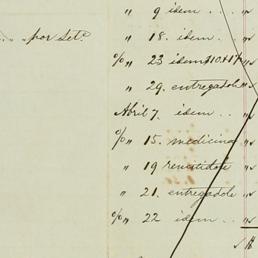 " 9 idem . . . "
.. por Set.º " 18. idem . . "
%" 23 idem $10.17 "
" 29. entregadole "
Abril 7. idem . . "
%" 15. medicina "
" 19 remitidole "
" 21. entregadole "
%" 22 idem . . "